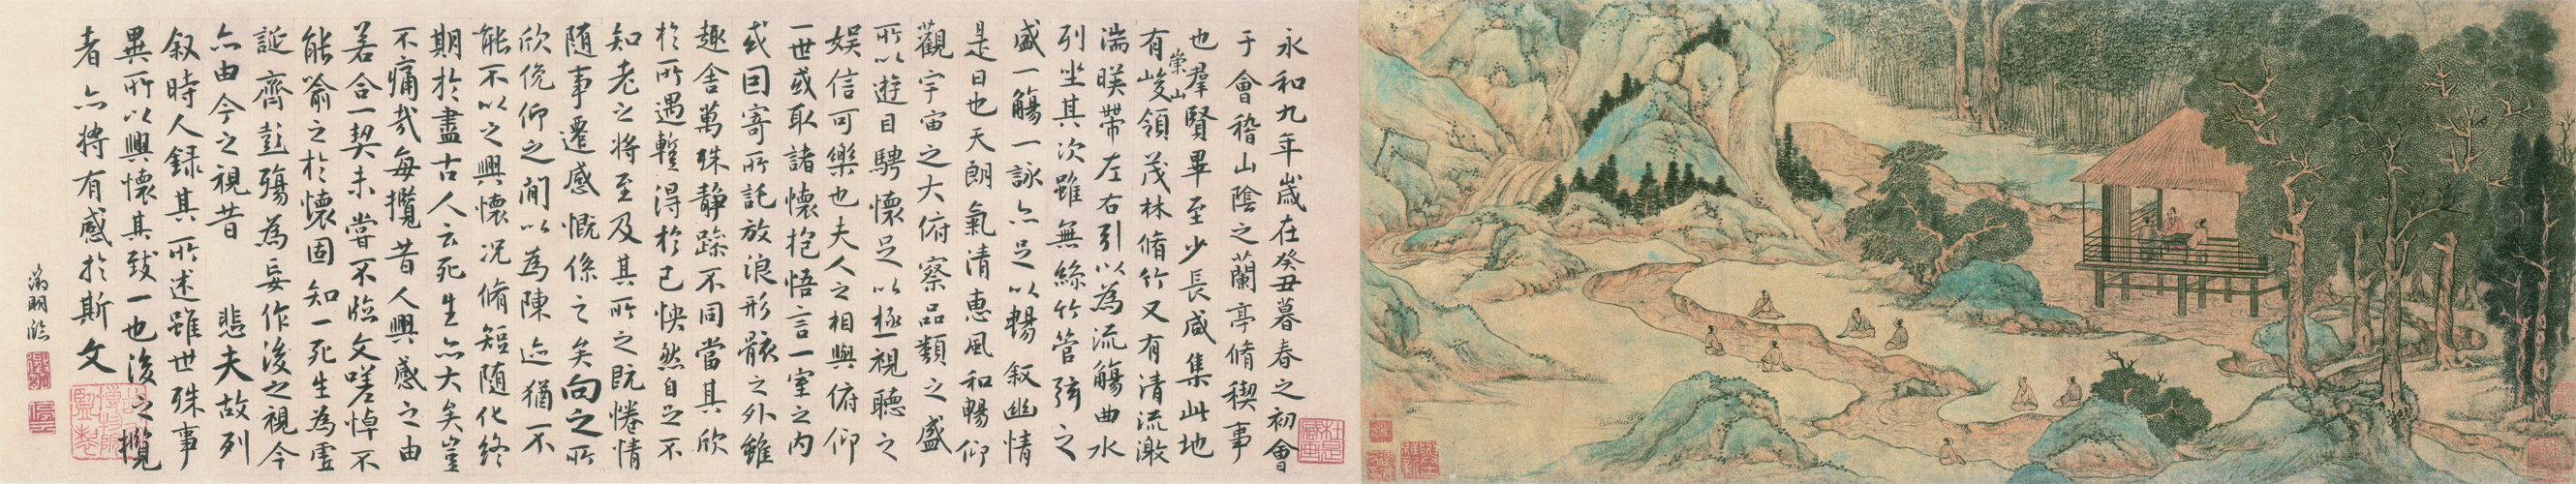 永和九年歲在癸丑暮春之初會
于會稽山陰之蘭亭脩稧事
也羣賢畢至少長咸集此地
有崇山峻領茂林脩竹又有清流激
湍暎帶左右引以為流觴曲水
列坐其次雖無絲竹管弦之
盛一觴一詠亦足以暢叙幽情
是日也天朗氣清惠風和暢仰
觀宇宙之大俯察品類之盛
所以遊目騁懷足以極視聽之
娛信可樂也夫人之相與俯仰
一世或取諸懷抱悟言一室之內
或因寄所託放浪形骸之外雖
趣舍萬殊靜躁不同當其欣
於所遇蹔得於己怏然自足不
知老之將至及其所之既惓情
隨事遷感慨係之矣向之所
欣俛仰之間以為陳迹猶不
能不以之興懷况脩短隨化終
期於盡古人云死生亦大矣豈
不痛哉每攬昔人興感之由
若合一契未嘗不臨文嗟悼不
能喻之於懷固知一死生為虛
誕齊彭殤為妄作後之視今
亦由今之視昔悲夫故列
叙時人錄其所述雖世殊事
異所以興懷其致一也後之攬
者亦將有感於斯文
徵明臨